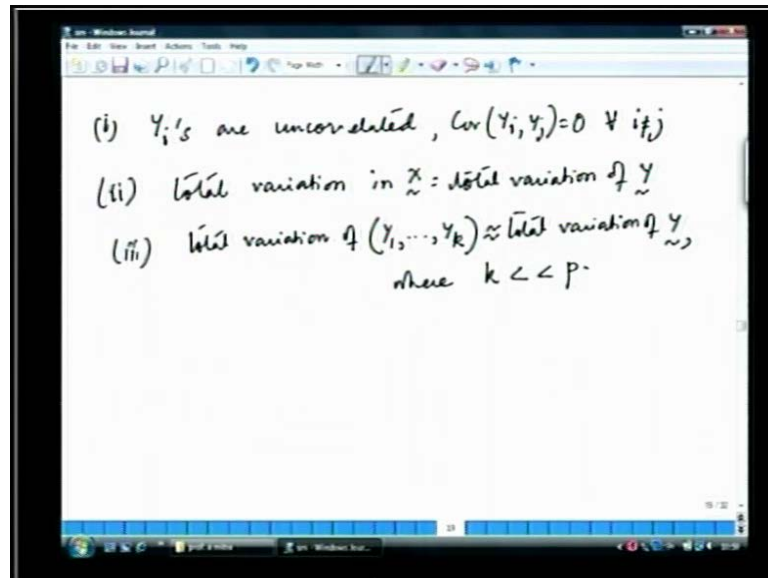 srs - Windows Journal
File Edit View Insert Actions Tools Help
Page Width
(i) Y_i's are uncorrelated, Cov(Y_i, Y_j)=0 ∀ i≠j
(ii) total variation in X̰ = total variation of Y̰
(iii) total variation of (Y_1, ..., Y_k) ≈ total variation of Y̰,
where k << p.
19